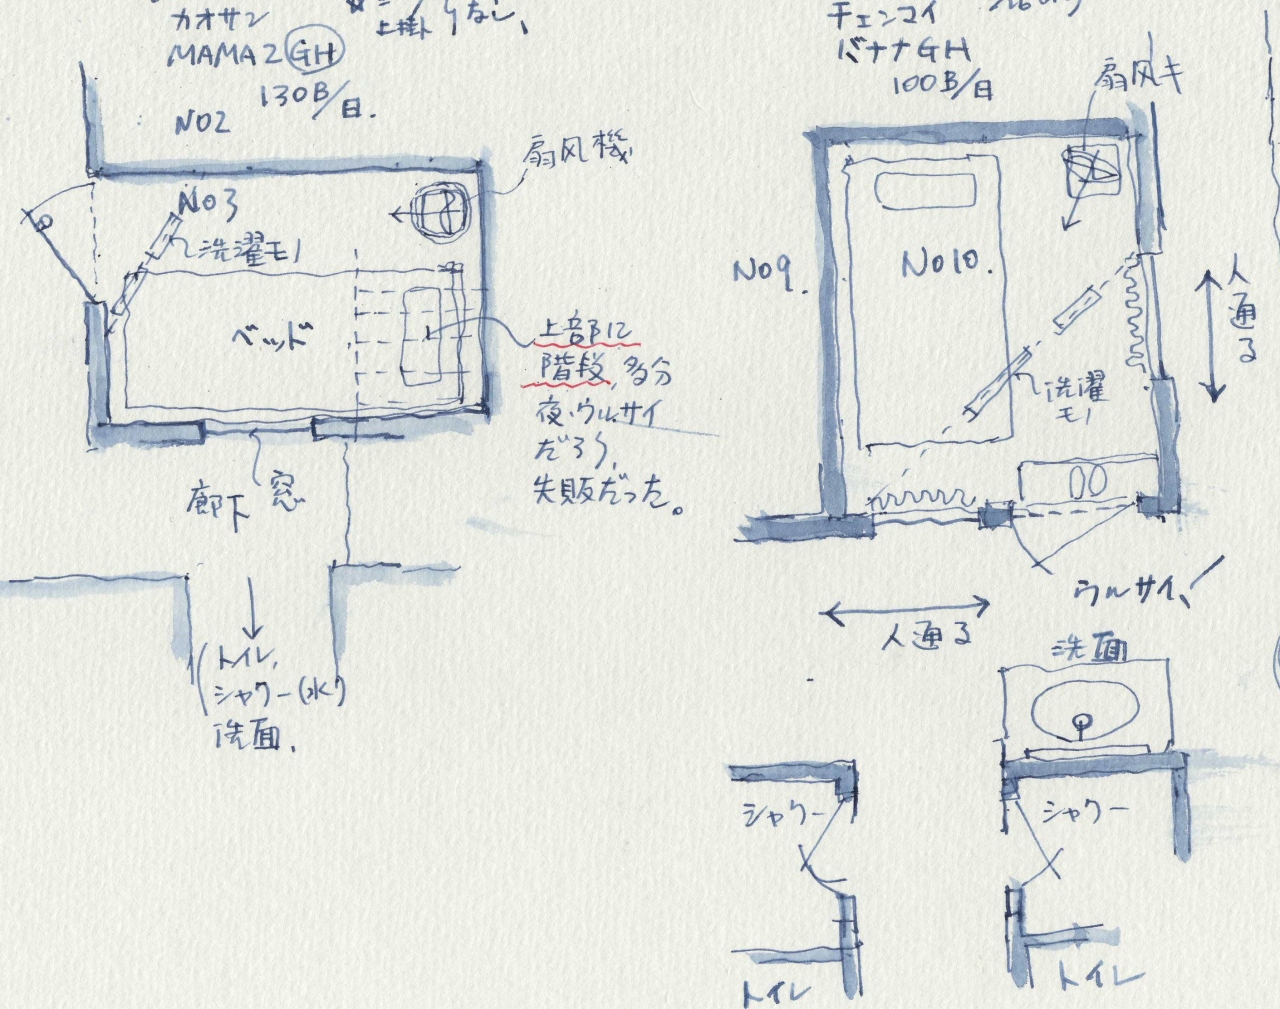 カオサン
MAMA2 GH
130B/日.
上掛
りなし、
NO2
NO3
洗濯モノ
扇风機
ベッド
上部に
階段,多分
夜,ウルサイ
だろう,
失敗だった。
窓
廊下
トイレ,
シャワー(水)
洗面.
チェンマイ
バナナGH
100B/日
扇风キ
NO9.
NO10.
人通る
洗濯
モノ
人通る
ウルサイ,
洗面
シャワー
シャワー
トイレ
トイレ